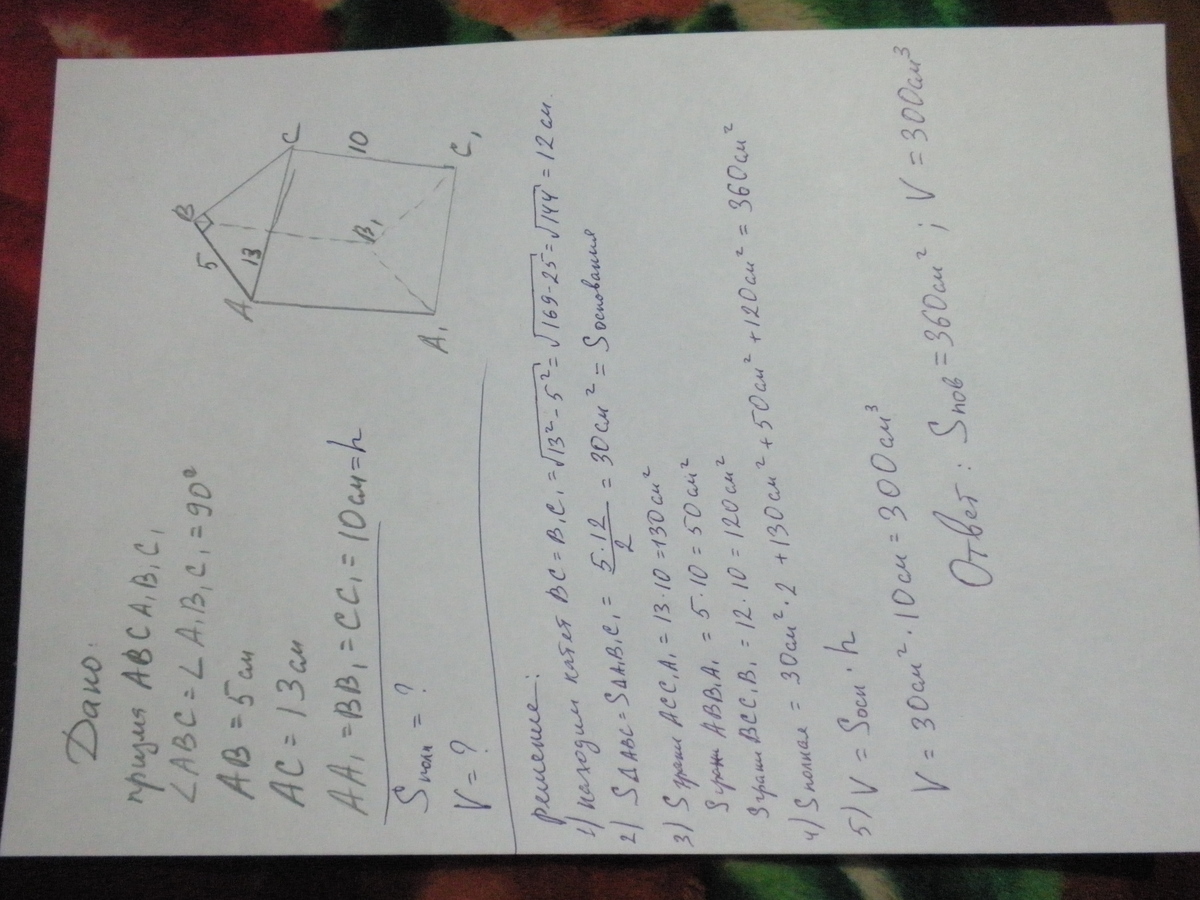 Дано:
призма ABCA₁B₁C₁
∠ABC = ∠A₁B₁C₁ = 90°
AB = 5 см
AC = 13 см
AA₁ = BB₁ = CC₁ = 10 см = h
Sполн = ?
V = ?
B
5
A
13
C
10
B₁
A₁
C₁
решение:
1) находим катет BC = B₁C₁ = √13² - 5² = √169-25 = √144 = 12 см.
2) S△ABC = S△A₁B₁C₁ = 5·12/2 = 30 см² = Sоснования
3) S грани ACC₁A₁ = 13·10 = 130 см²
S грани ABB₁A₁ = 5·10 = 50 см²
S грани BCC₁B₁ = 12·10 = 120 см²
4) Sполная = 30 см²·2 + 130 см² + 50 см² + 120 см² = 360 см²
5) V = Sосн · h
V = 30 см² · 10 см = 300 см³
Ответ: Sпов = 360 см²; V = 300 см³